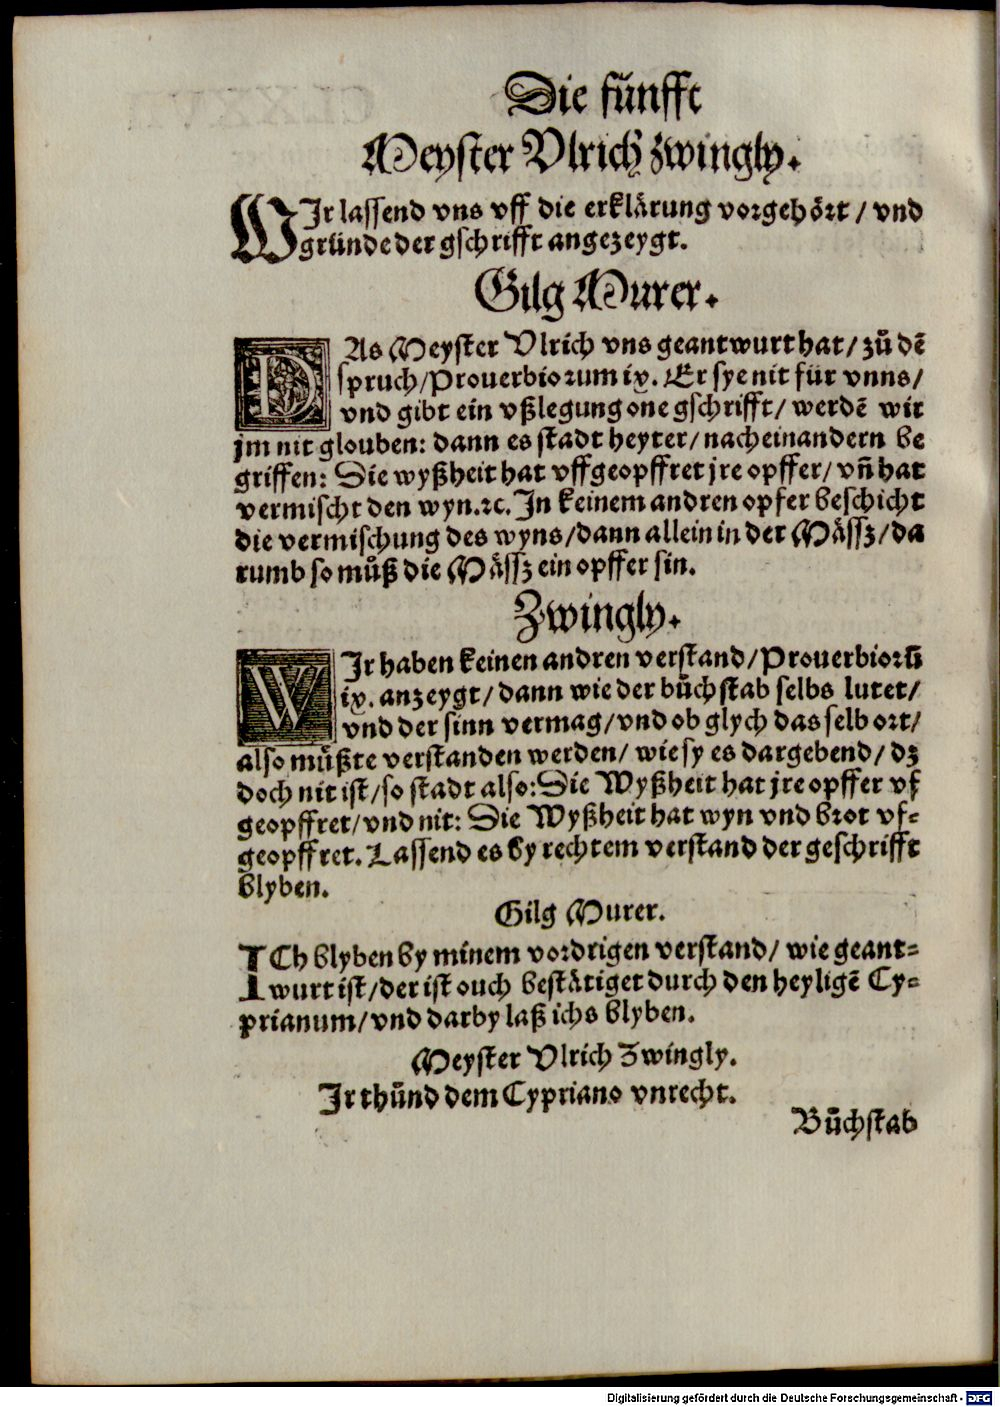 Die fünfft
Meyster Vlrich Zwingly.
WIr lassend vns vff die erklärung vorgehört / vnd
gründe der gschrifft angezeygt.
Gilg Murer.
DAs Meyster Vlrich vns geantwurt hat / zů dē
spruch / Prouerbiorum ix. Er sye nit für vnns /
vnd gibt ein vßlegung one gschrifft / werdē wir
jm nit glouben: dann es stadt heyter / nacheinandern be
griffen: Die wyßheit hat vffgeopffret jre opffer / vn̄ hat
vermischt den wyn. ꝛc. In keinem andren opfer beschicht
die vermischung des wyns / dann allein in der Mässz / da
rumb so můß die Mässz ein opffer sin.
Zwingly.
WIr haben keinen andren verstand / Prouerbiorū
ix. anzeygt / dann wie der bůchstab selbs lutet /
vnd der sinn vermag / vnd ob glych das selb ort /
also můßte verstanden werden / wie sy es dargebend / dz
doch nit ist / so stadt also: Die Wyßheit hat jre opffer vf
geopffret / vnd nit: Die Wyßheit hat wyn vnd brot vf-
geopffret. Lassend es by rechtem verstand der geschrifft
blyben.
Gilg Murer.
ICh blyben by minem vordrigen verstand / wie geant-
wurt ist / der ist ouch bestätiget durch den heyligē Cy-
prianum / vnd darby laß ichs blyben.
Meyster Vlrich Zwingly.
Ir thůnd dem Cypriano vnrecht.
Bůchstab
Digitalisierung gefördert durch die Deutsche Forschungsgemeinschaft - DFG